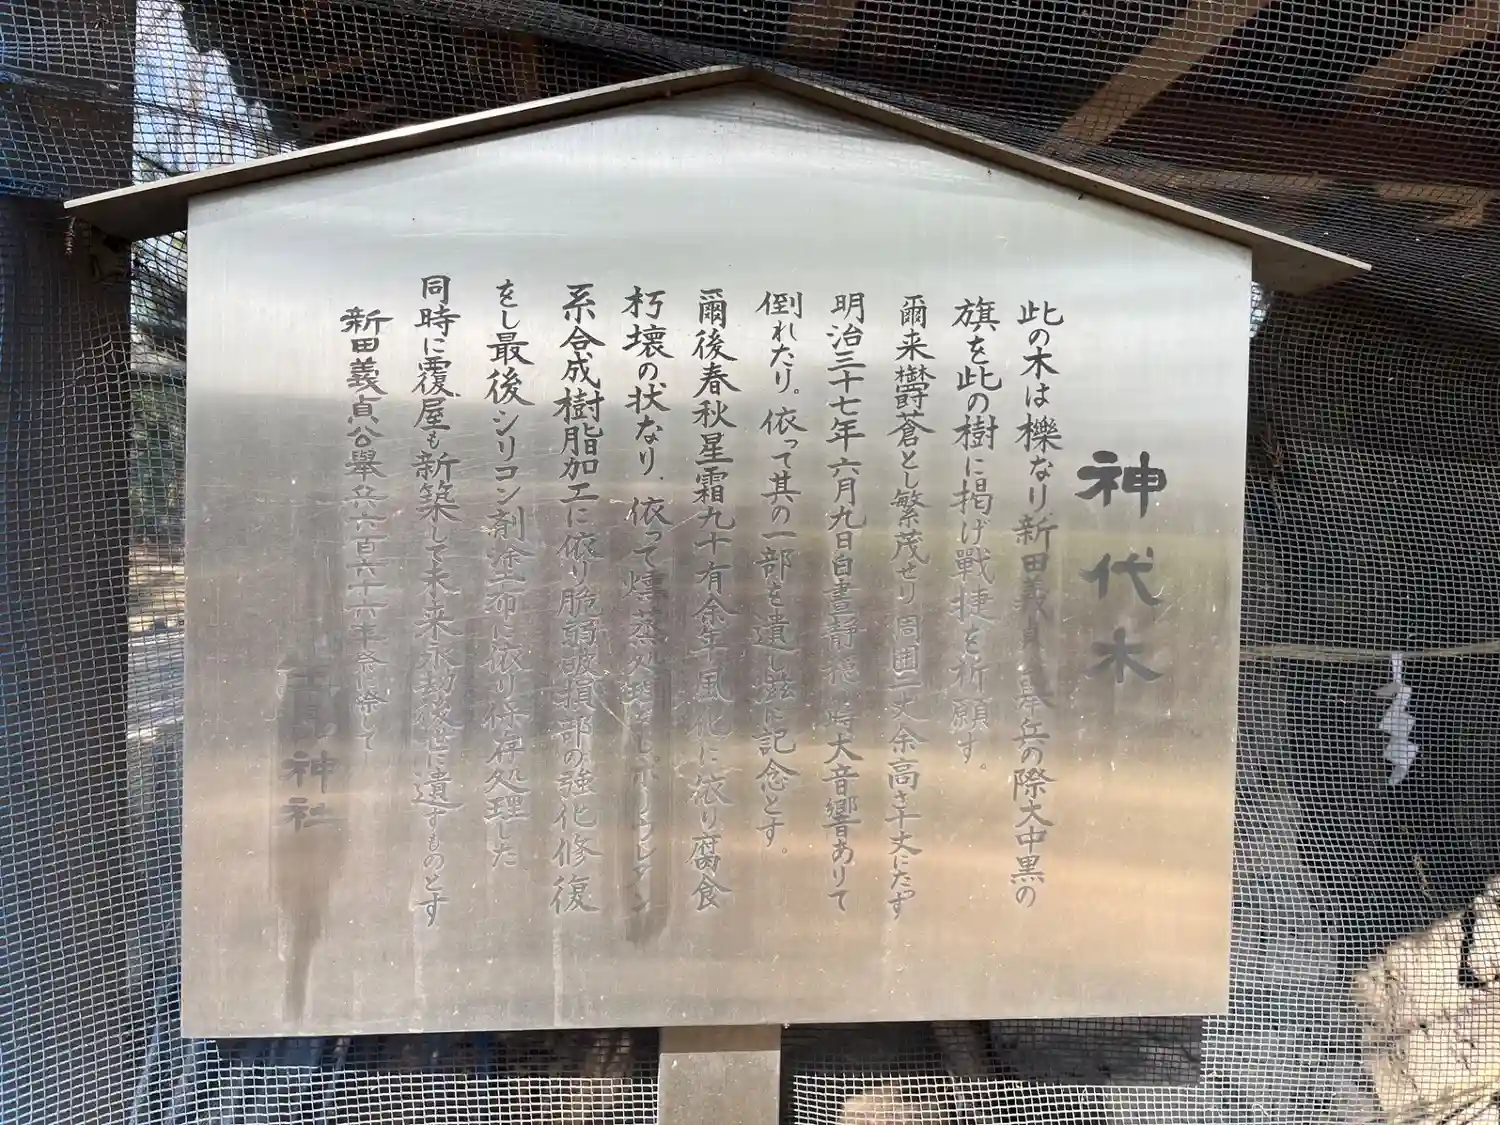 神代木
此の木は櫟なり新田義貞公挙兵の際大中黒の
旗を此の樹に掲げ戰捷を祈願す。
爾来欝蒼とし繁茂せり周囲一丈余高さ十丈にたっす
明治三十七年六月九日白晝静穏の時大音響ありて
倒れたり。依って其の一部を遺し茲に記念とす。
爾後春秋星霜九十有余年風化に依り腐食
朽壊の状なり、依って燻蒸処理をし。ポリウレタン
系合成樹脂加工に依り脆弱破損部の強化修復
をし最後シリコン剤塗布に依り保存処理した
同時に覆屋も新築して未来永劫後世に遺すものとす
新田義貞公舉兵六百六十六年祭に際して
神社